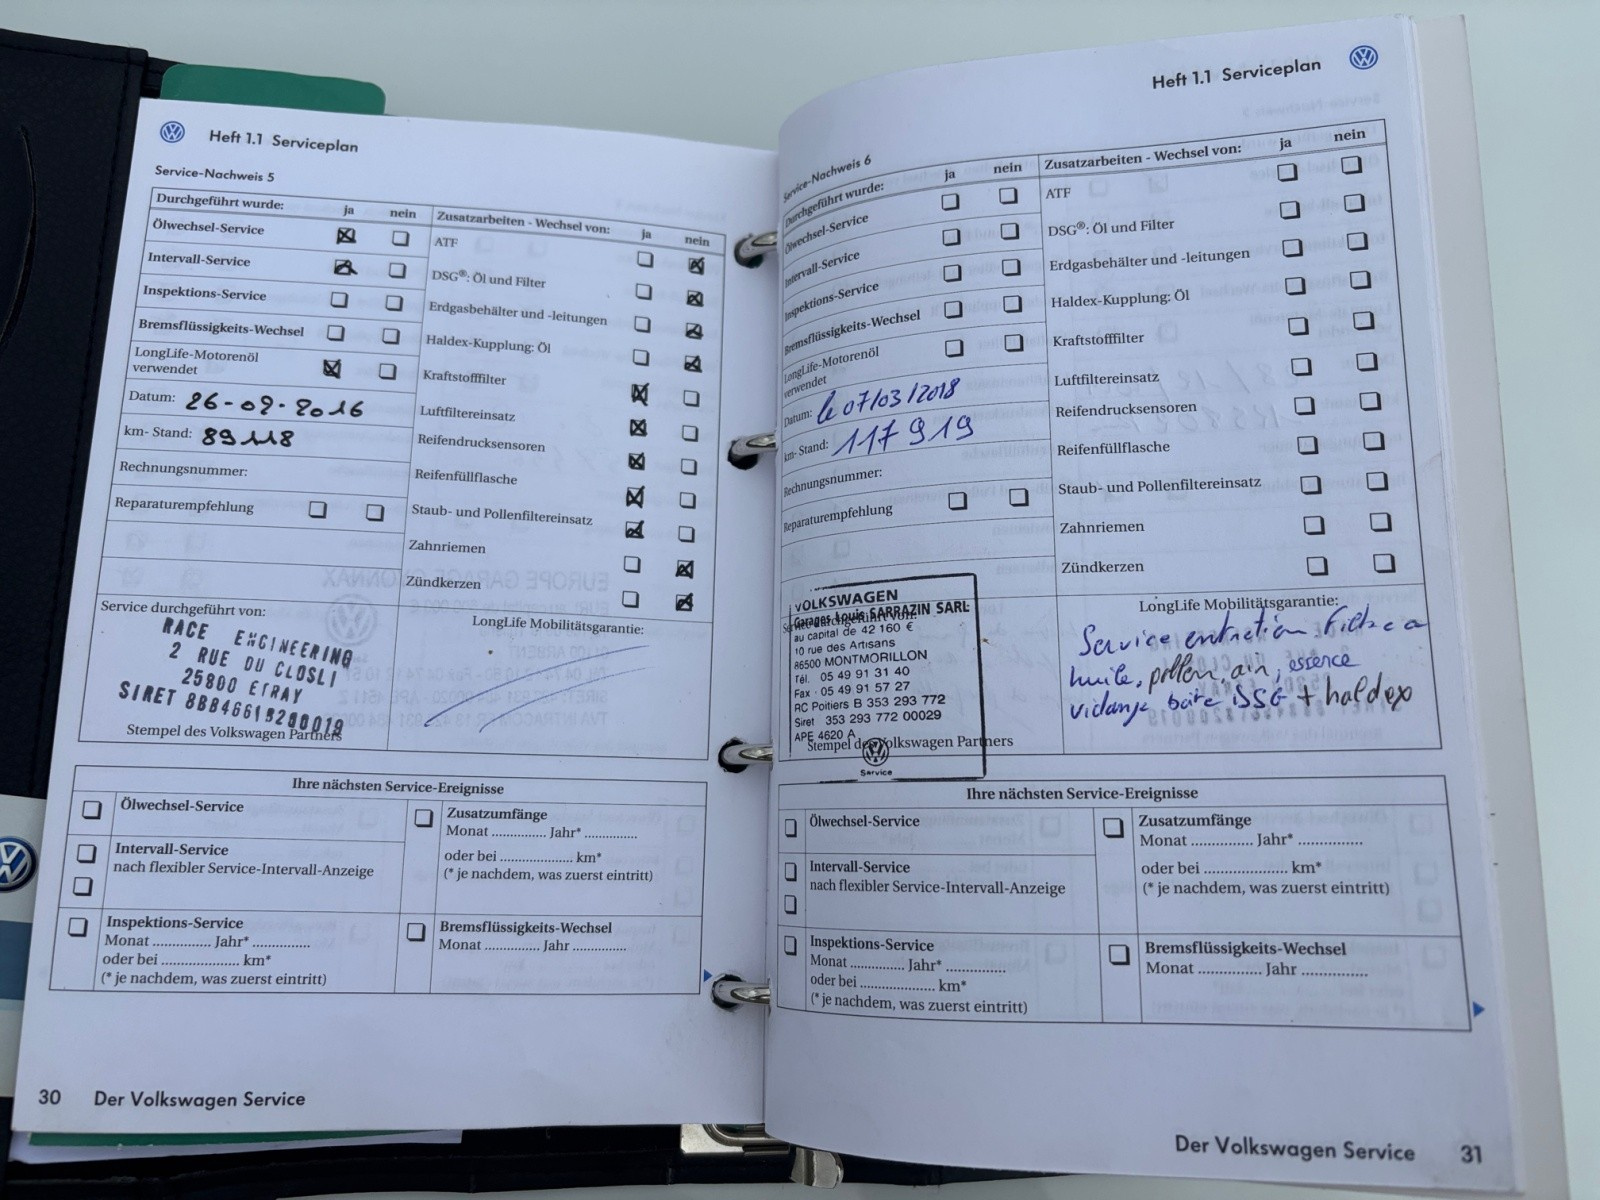 Heft 1.1 Serviceplan
Service-Nachweis 5
Durchgeführt wurde: ja nein
Ölwechsel-Service
Intervall-Service
Inspektions-Service
Bremsflüssigkeits-Wechsel
LongLife-Motorenöl
verwendet
Datum: 26-09-2016
km- Stand: 89118
Rechnungsnummer:
Reparaturempfehlung
Zusatzarbeiten - Wechsel von: ja nein
ATF
DSG®: Öl und Filter
Erdgasbehälter und -leitungen
Haldex-Kupplung: Öl
Kraftstofffilter
Luftfiltereinsatz
Reifendrucksensoren
Reifenfüllflasche
Staub- und Pollenfiltereinsatz
Zahnriemen
Zündkerzen
Service durchgeführt von:
RACE ENGINEERING
2 RUE DU CLOSLI
25800 ETRAY
SIRET
Stempel des Volkswagen Partners
LongLife Mobilitätsgarantie:
Ihre nächsten Service-Ereignisse
Ölwechsel-Service
Intervall-Service
nach flexibler Service-Intervall-Anzeige
Inspektions-Service
Monat .............. Jahr* ..............
oder bei .................... km*
(* je nachdem, was zuerst eintritt)
Zusatzumfänge
Monat .............. Jahr* .............
oder bei .................... km*
(* je nachdem, was zuerst eintritt)
Bremsflüssigkeits-Wechsel
Monat .............. Jahr ..............
30 Der Volkswagen Service
Heft 1.1 Serviceplan
Service-Nachweis 6
Durchgeführt wurde: ja nein
Ölwechsel-Service
Intervall-Service
Inspektions-Service
Bremsflüssigkeits-Wechsel
LongLife-Motorenöl
verwendet
Datum: le 07/03/2018
km- Stand: 117 919
Rechnungsnummer:
Reparaturempfehlung
Zusatzarbeiten - Wechsel von: ja nein
ATF
DSG®: Öl und Filter
Erdgasbehälter und -leitungen
Haldex-Kupplung: Öl
Kraftstofffilter
Luftfiltereinsatz
Reifendrucksensoren
Reifenfüllflasche
Staub- und Pollenfiltereinsatz
Zahnriemen
Zündkerzen
Service durchgeführt von:
VOLKSWAGEN
Garages Louis SARRAZIN SARL
au capital de 42 160 €
10 rue des Artisans
86500 MONTMORILLON
Tél. 05 49 91 31 40
Fax · 05 49 91 57 27
RC Poitiers B 353 293 772
Siret 353 293 772 00029
APE 4620 A
Service
Stempel des Volkswagen Partners
LongLife Mobilitätsgarantie:
Service entretien Filtre a
huile, pollen, air, essence
vidange boite DSG + haldex
Ihre nächsten Service-Ereignisse
Ölwechsel-Service
Intervall-Service
nach flexibler Service-Intervall-Anzeige
Inspektions-Service
Monat .............. Jahr* ..............
oder bei .................... km*
(* je nachdem, was zuerst eintritt)
Zusatzumfänge
Monat .............. Jahr* ...............
oder bei ...................... km*
(* je nachdem, was zuerst eintritt)
Bremsflüssigkeits-Wechsel
Monat ............... Jahr ...............
Der Volkswagen Service 31